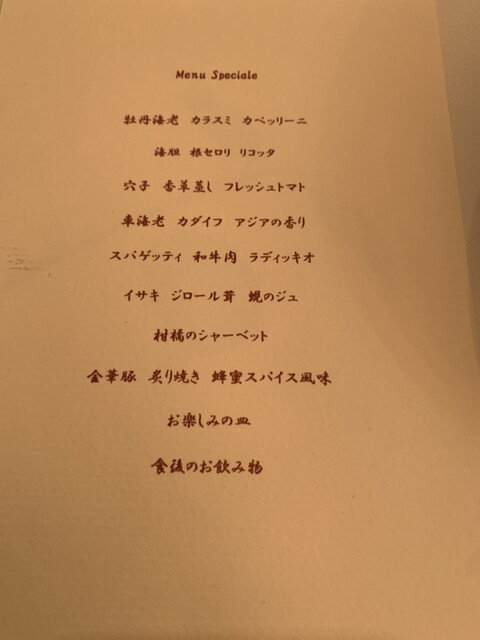 Menu Speciale
牡丹海老 カラスミ カペッリーニ
海胆 根セロリ リコッタ
穴子 香草蒸し フレッシュトマト
車海老 カダイフ アジアの香り
スパゲッティ 和牛肉 ラディッキオ
イサキ ジロール茸 蜆のジュ
柑橘のシャーベット
金華豚 炙り焼き 蜂蜜スパイス風味
お楽しみの皿
食後のお飲み物